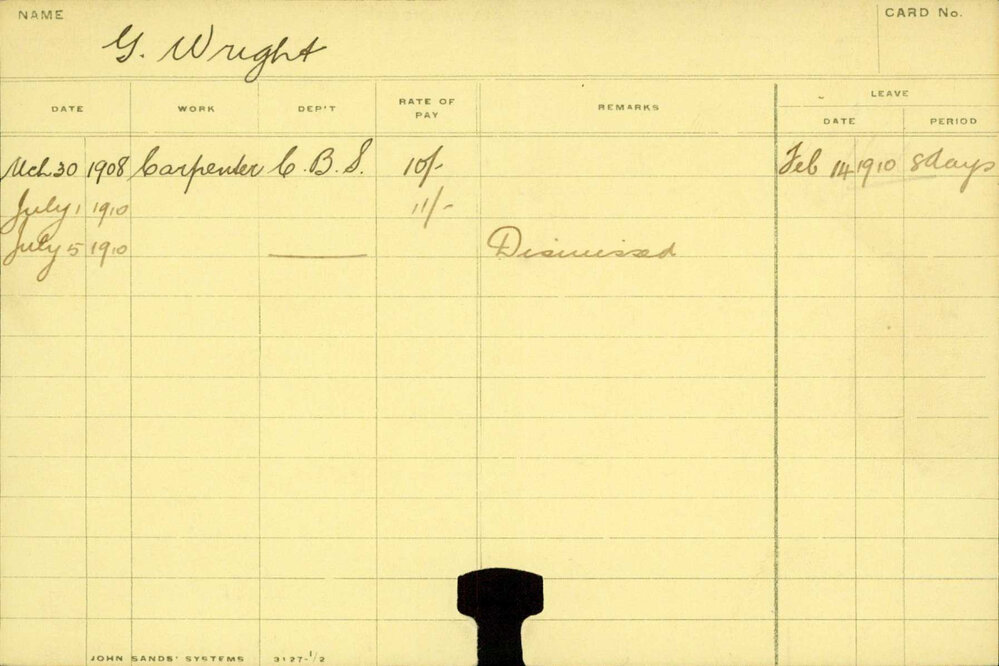 NAME CARD No.
G. Wright
LEAVE
DATE WORK DEP'T RATE OF PAY REMARKS DATE PERIOD
Mch 30 1908 Carpenter C.B.S. 10/- Feb 14 1910 8 days
July 1 1910 11/-
July 5 1910 Dismissed
JOHN SANDS' SYSTEMS 3127-1/2